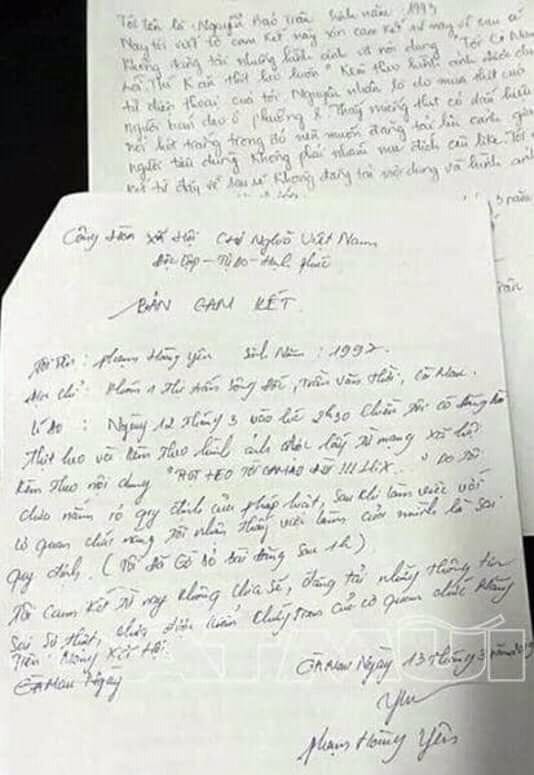 Tôi tên là Nguyễn Bảo Trân Sinh năm 1993
Nay tôi viết tờ cam kết này xin cam kết từ nay về sau sẽ
Không đăng tải những hình ảnh và nội dung "Tới Cà Mau
Kèm theo hình ảnh được
từ điện thoại của tôi Nguyên nhân là do mua thịt của
người bán dạo ở phường 8 Thấy miếng thịt có dấu hiệu
nổi hột trắng trong đó nên muốn đăng tải lên cảnh
người tiêu dùng Không phải nhằm mục đích câu like. Tôi
kết từ đây về sau sẽ Không đăng tải nội dung và hình ảnh
3 năm
Trân
Cộng Hòa Xã Hội Chủ Nghĩa Việt Nam
Độc Lập - Tự Do - Hạnh phúc
BẢN CAM KẾT
Tôi Tên : Phạm Hồng Yên Sinh Năm : 1992.
Địa chỉ : Khóm 1 Thị trấn Sông Đốc, Trần Văn Thời, Cà Mau.
Lí do : Ngày 12 tháng 3 vào lúc 2h30 Chiều Tôi có đăng bài
Thịt heo và kèm theo hình ảnh được lấy từ mạng xã hội
Kèm theo nội dung TỚI CÀ MAU RỒI !!! HIX. " Do tôi
chưa nắm rõ quy định của pháp luật, Sau khi làm việc với
cơ quan chức năng tôi nhận thấy việc làm của mình là sai
quy định. ( Tôi đã gỡ bỏ bài đăng sau 1h )
Tôi Cam Kết từ nay không chia sẻ, đăng tải những thông tin
Sai sự thật, chưa được kiểm chứng của cơ quan chức năng
Trên Mạng Xã Hội.
Cà Mau Ngày
Cà Mau Ngày 13 tháng 3 năm 2019
Yên
Phạm Hồng Yên
ĐẤT MŨI